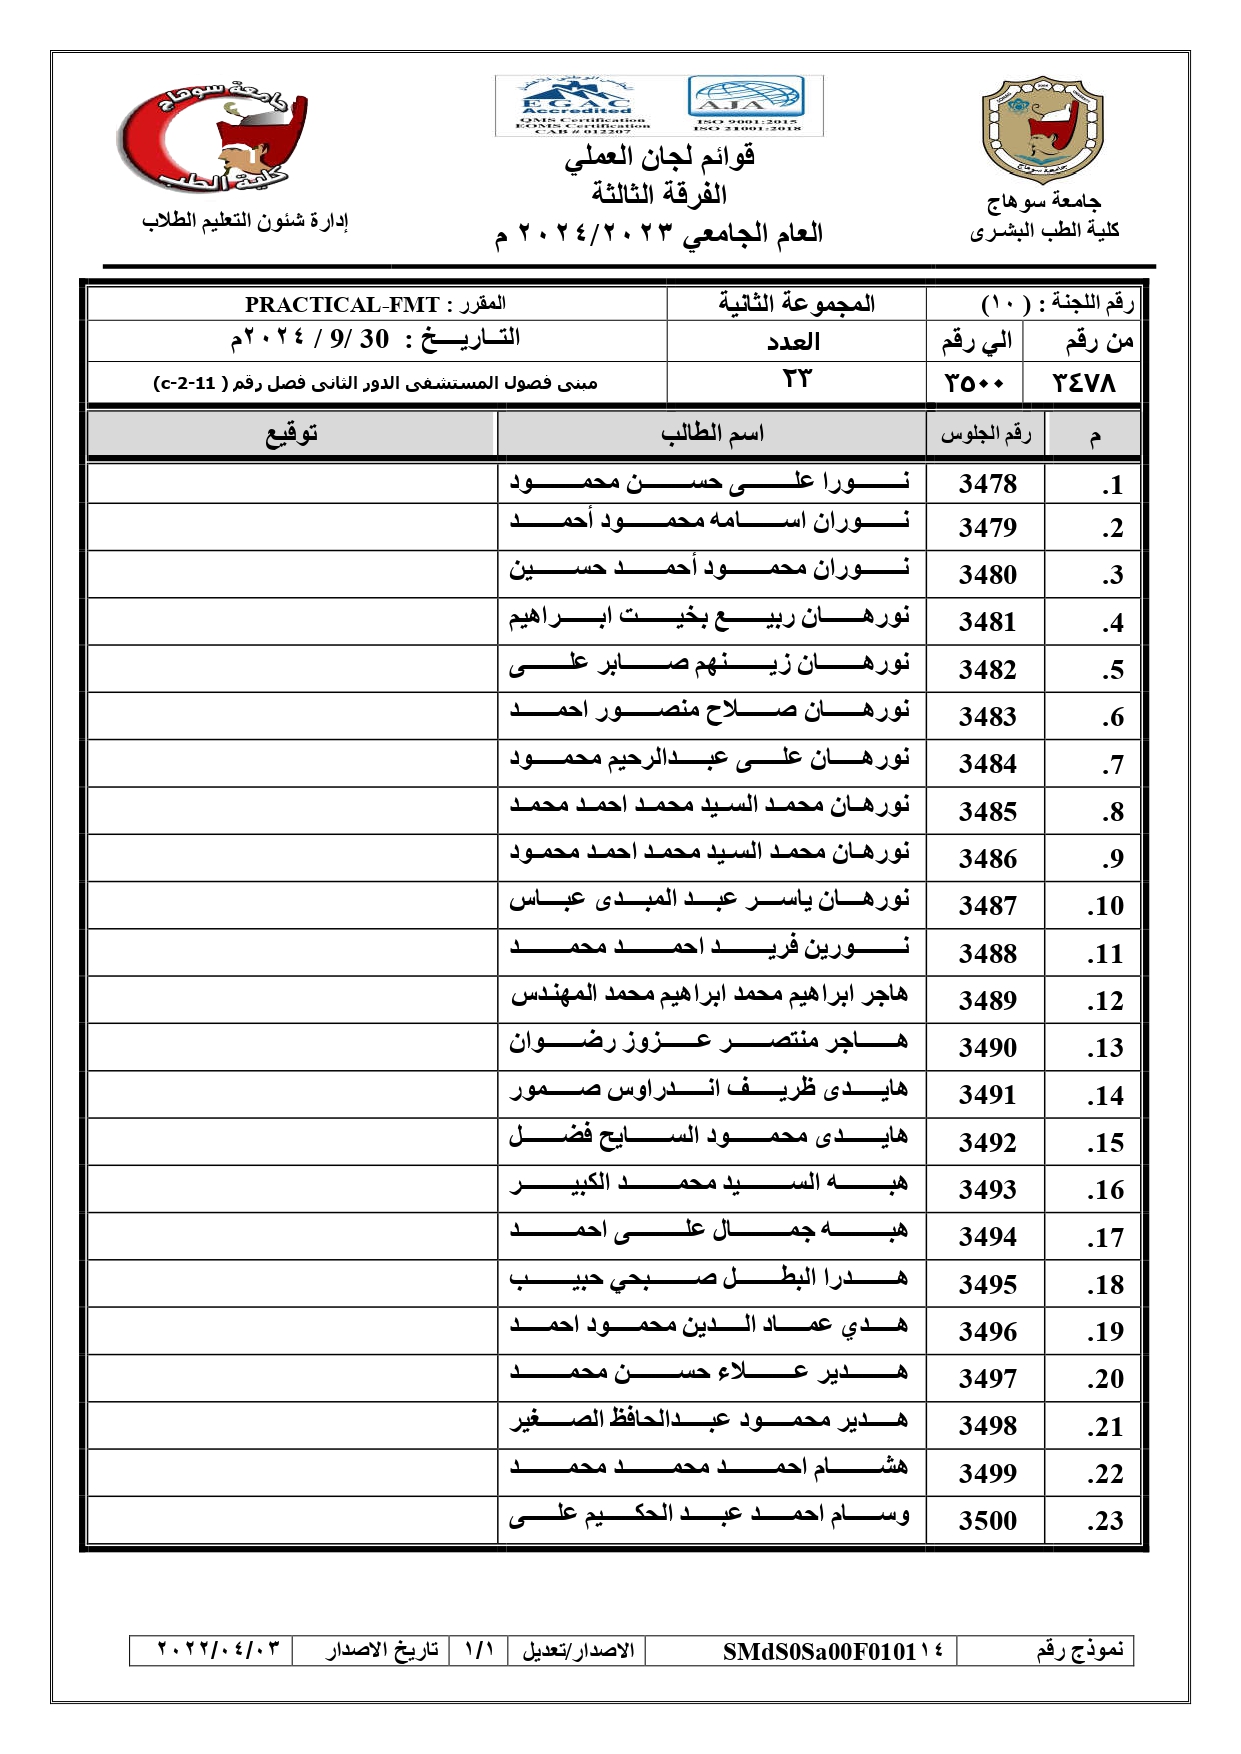 جامعة سوهاج
كلية الطب
إدارة شئون التعليم الطلاب
EGAC
Accredited
QMS Certification
EOMS Certification
CAB # 012207
AJA
ISO 9001:2015
ISO 21001:2018
قوائم لجان العملي
الفرقة الثالثة
العام الجامعي ٢٠٢٤/٢٠٢٣ م
جامعة سوهاج
جامعة سوهاج
كلية الطب البشرى
رقم اللجنة : ( ١٠) المجموعة الثانية المقرر : PRACTICAL-FMT
من رقم الي رقم العدد التـاريـــخ : 30 /9 / ٢٠٢٤م
٣٤٧٨ ٣٥٠٠ ٢٣ مبنى فصول المستشفى الدور الثانى فصل رقم ( c-2-11)
م رقم الجلوس اسم الطالب توقيع
1. 3478 نورا على حسن محمود
2. 3479 نوران اسامه محمود أحمد
3. 3480 نوران محمود أحمد حسين
4. 3481 نورهان ربيع بخيت ابراهيم
5. 3482 نورهان زينهم صابر على
6. 3483 نورهان صلاح منصور احمد
7. 3484 نورهان على عبدالرحيم محمود
8. 3485 نورهان محمد السيد محمد احمد محمد
9. 3486 نورهان محمد السيد محمد احمد محمود
10. 3487 نورهان ياسر عبد المبدى عباس
11. 3488 نورين فريد احمد محمد
12. 3489 هاجر ابراهيم محمد ابراهيم محمد المهندس
13. 3490 هاجر منتصر عزوز رضوان
14. 3491 هايدى ظريف اندراوس صمور
15. 3492 هايدى محمود السايح فضل
16. 3493 هبه السيد محمد الكبير
17. 3494 هبه جمال على احمد
18. 3495 هدرا البطل صبحي حبيب
19. 3496 هدي عماد الدين محمود احمد
20. 3497 هدير علاء حسن محمد
21. 3498 هدير محمود عبدالحافظ الصغير
22. 3499 هشام احمد محمد محمد
23. 3500 وسام احمد عبد الحكيم على
نموذج رقم SMdS0Sa00F0101١٤ الاصدار/تعديل ١/١ تاريخ الاصدار ٢٠٢٢/٠٤/٠٣